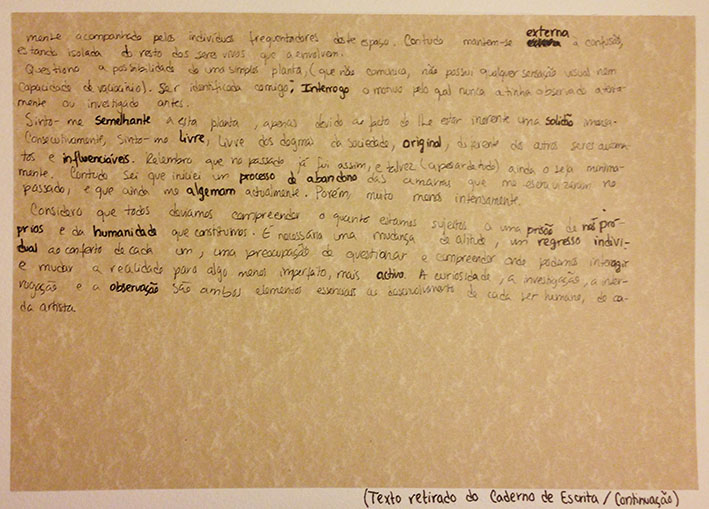 mente acompanhado pelos indivíduos frequentadores deste espaço. Contudo mantem-se externa à confusão,
estando isolada do resto dos seres vivos que a envolvem.
Questiono a possibilidade de uma simples planta, (que não comunica, não possui qualquer sensação usual nem
capacidade de raciocínio). Ser identificada comigo, Interrogo o motivo pelo qual nunca a tinha observado atenta-
mente ou investigado antes.
Sinto-me Semelhante a esta planta, apenas devido ao facto de lhe estar inerente uma solidão imensa.
Consecutivamente, Sinto-me Livre, Livre dos dogmas da sociedade, original, diferente dos outros seres
tos e influenciáveis. Relembro que no passado já fui assim, e talvez (apesar de tudo) ainda o seja minima-
mente. Contudo sei que iniciei um processo de abandono das amarras que me escravizaram no
passado, e que ainda me algemam actualmente. Porém, muito menos intensamente.
Considero que todos devíamos compreender o quanto estamos sujeitos a uma prisão de nós pró-
prios e da humanidade que constituímos. É necessária uma mudança de atitude, um regresso indivi-
dual ao conforto de cada um, uma preocupação de questionar e compreender onde podemos interagir
e mudar a realidade para algo menos imperfeito, mais activo. A curiosidade, a investigação, a inter-
rogação e a observação são ambos elementos essenciais ao desenvolvimento de cada ser humano, de ca-
da artista.
(Texto retirado do Caderno de Escrita / Continuação)